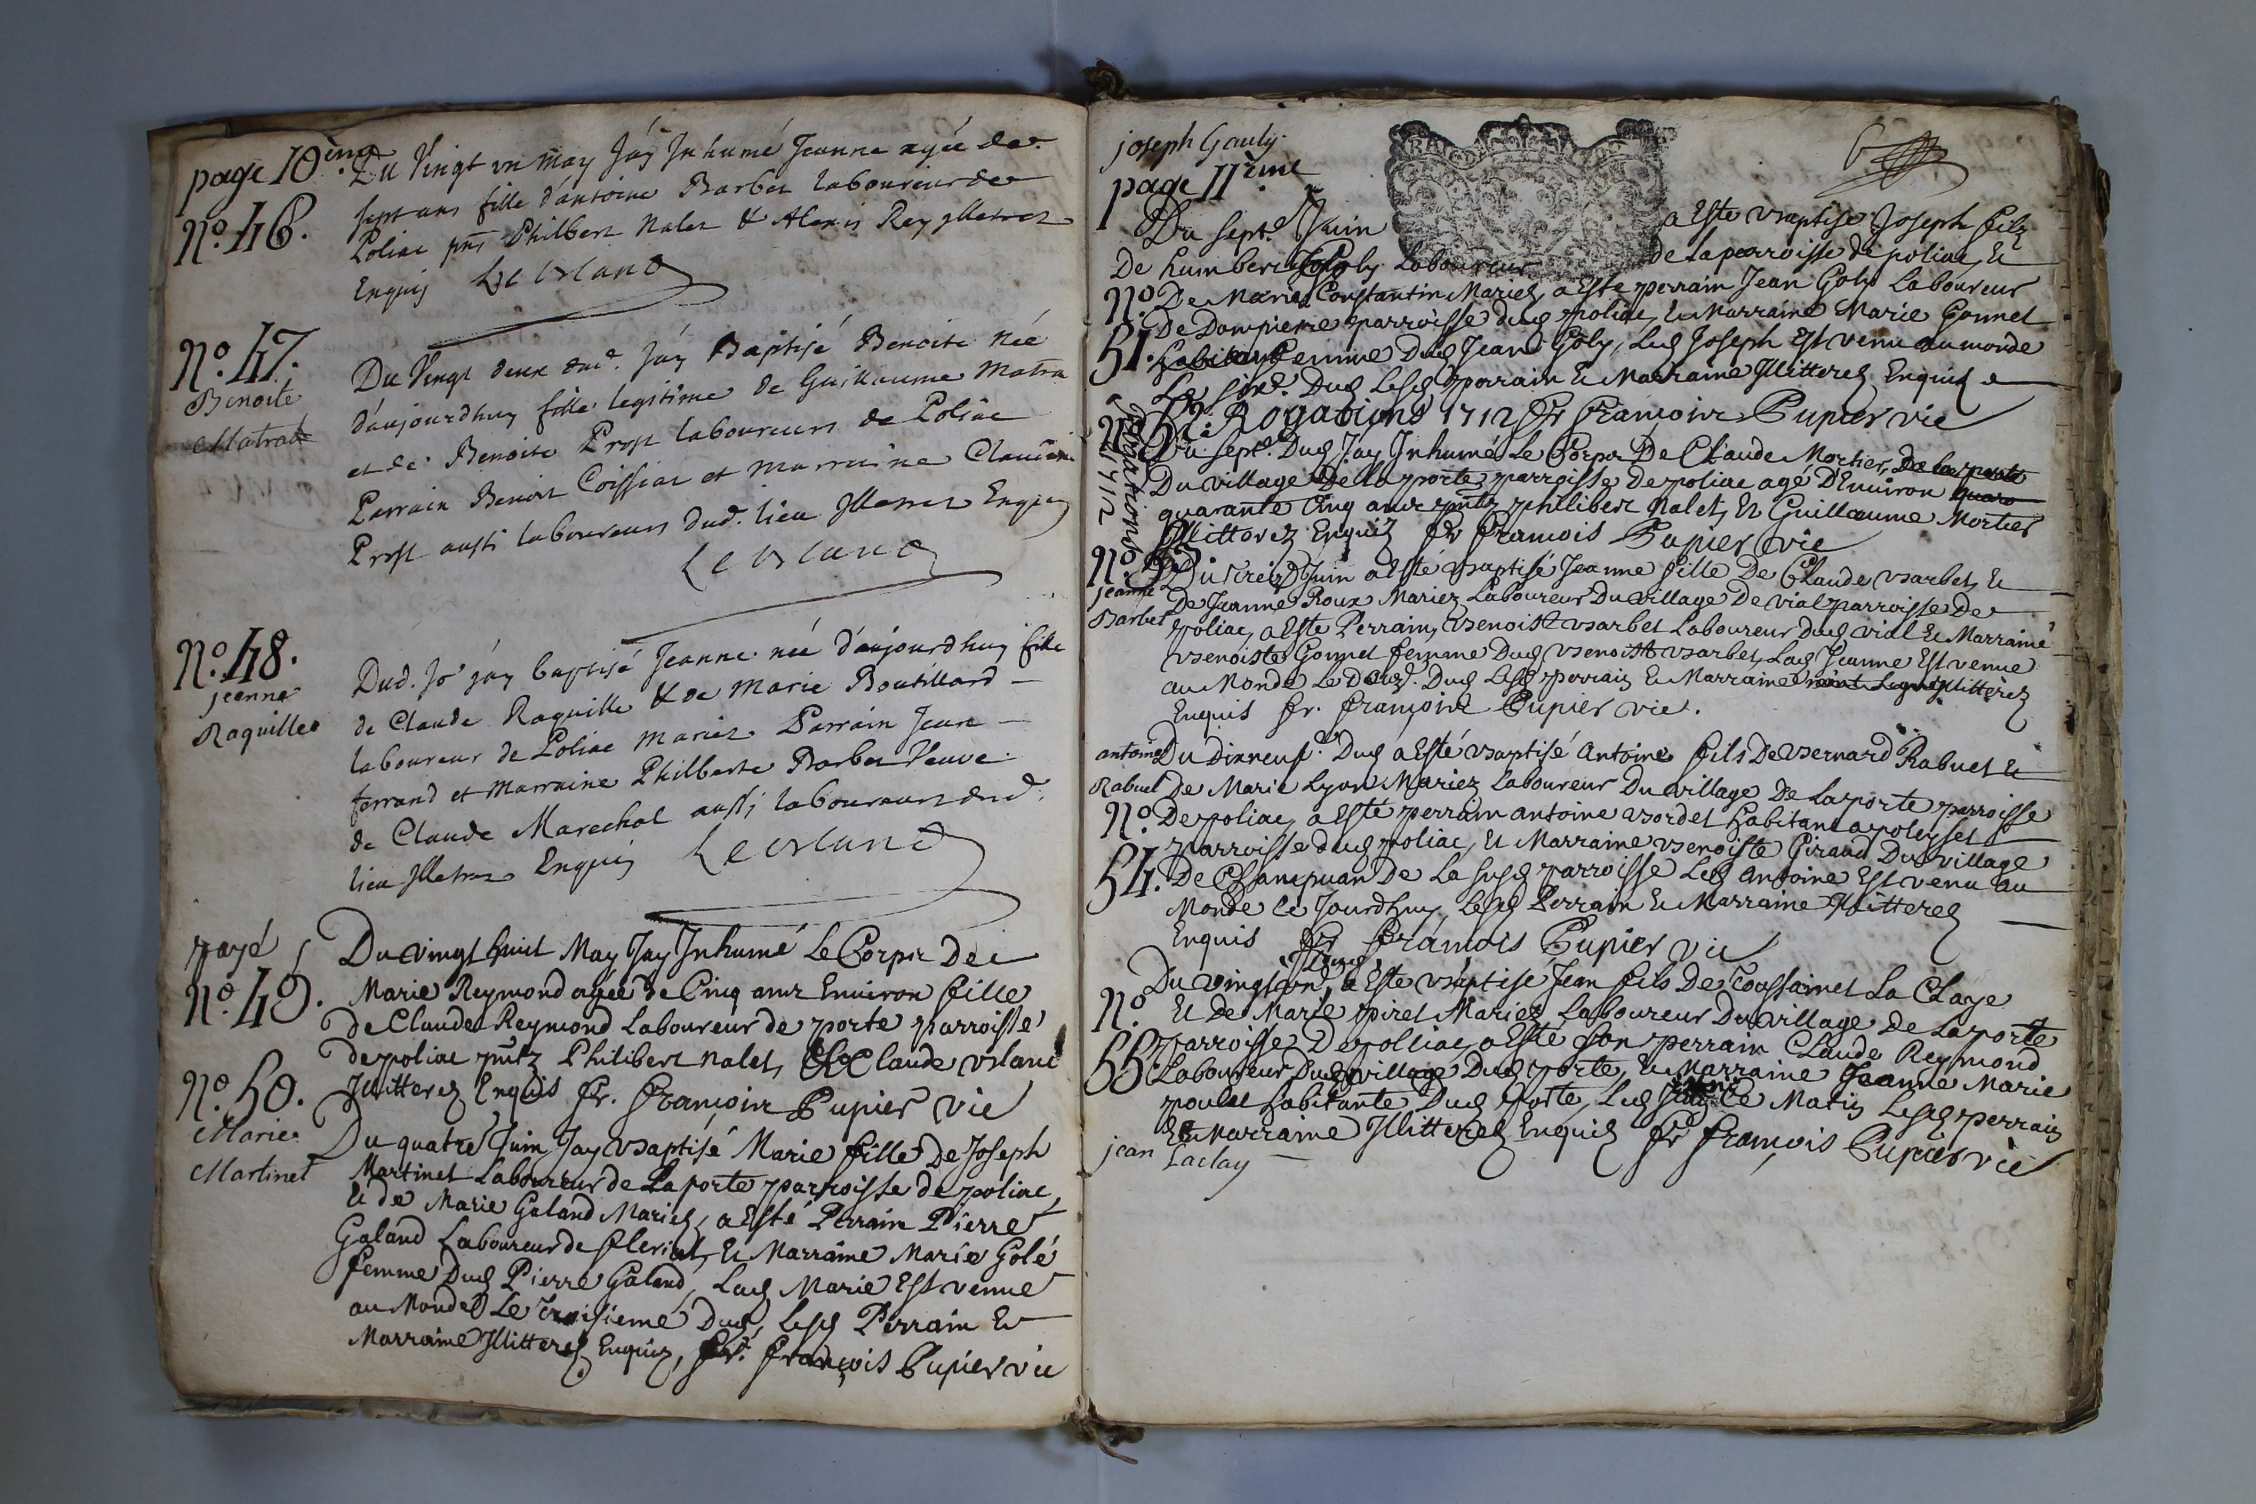 page 10ème
Du Vingt un May j'ay Inhumé Jeanne agée de
N.º 46.
sept ans fille d'antoine Barbet laboureur de
Poliac pnts Philbert Nalet & Alexis Rey Illetrez
Enquis LeBlanc
N.º 47.
Benoite
Matrat
Du Vingt deux dud. j'ay Baptisé Benoite Née
d'aujourdhuy fille legitime de Guillaume Matra
et de Benoite Prost laboureurs de Poliac
Parrain Benoit Coissiat et marraine Claudine
Prost aussi laboureurs dud. lieu Illetrez Enquis
LeBlanc
N.º 48.
jeanne
Raquilles
Dud. jo.r j'ay baptisé Jeanne née d'aujourdhuy fille
de Claude Raquille & de Marie Boutillard
laboureur de Poliac mariez Parrain Jean
ferrand et marraine Philberte Barbet Veuve
de Claude Marechal aussi laboureurs dud.
lieu Illetrez Enquis LeBlanc
payé
N.º 49.
Du vingt huit May Jay Inhumé Le Corps De
Marie Reymond agée de Cinq ans Environ fille
De Claude Reymond Laboureur de porte parroisse
de poliac pntz Philibert Nalet, Claude Blanc
Illitterez Enquis fr. françois Pupier vic
N.º 50.
Marie
Martinet
Du quatre Juin Jay Baptisé Marie fille De Joseph
Martinet Laboureur de La porte parroisse de poliac,
Et de Marie Galand Mariez, a Esté Perrain Pierre
Galand Laboureur de fleriat, Et Marraine Marie Golé
femme Dud Pierre Galand, Lad Marie Est venue
au Monde Le Troisieme Dud, Lesd Perrain Et
Marraine Illitterez Enquiz, fr. françois Pupier vic
joseph Gauly
page 11ème
Du sept.e Juin a Esté Baptisé Joseph filz
De humbert Goly Laboureur de La parroisse de poliac, Et
N.º
51.
De Marie Constantin Mariez, a Esté perrain Jean Goly Laboureur
De Dompierre parroisse dud poliac, Et Marraine Marie Gonnet
femme Dud Jean Goly, Led Joseph Est venu au monde
Le Dud Lesd perrain Et Marraine Illitterez Enquis
N.º 52. Rogations 1712 Fr françoir Pupier vic
Rogations
1712
Du sept.e Dud Jay Inhumé Le Corps De Claude Mortier, De La porte
Du village De La porte parroisse de poliac agé D'Environ quara
quarante Cinq ans pntz phillibert Nalet, Et Guillaume Mortier
Illitterez Enquiz fr françois Pupier vic
N.º 53.
jeanne
Barbet
Du Treize Juin a Esté Baptisé Jeanne fille De Claude Barbet, Et
De Jeanne Roux Mariez Laboureur Du village De vial parroisse De
poliac, a Esté Perrain, Benoist Barbet Laboureur Dud vial Et Marraine
Benoiste Gonnet femme Dud Benoist Barbet, Lad Jeanne Est venue
au Monde Le Dud Lesd perrain Et Marraine Illittèrez
Enquis fr. françoir Pupier vic.
antoine
Rabuel
N.º
54.
Du Dixneuf.e Dud a Esté Baptisé Antoine fils De Bernard Rabuel Et
De Marie Lyon Mariez Laboureur Du village De La porte parroisse
De poliac, a Esté perrain antoine Bordet habitant a poleyset
parroisse dud poliac, Et Marraine Benoiste Giraud Du village
De Champuan De La susd parroisse Led Antoine Est venu au
Monde Ce Jourdhuy, Lesd Perrain Et Marraine Illitterez
Enquis fr françois Pupier vic
N.º
55.
Du vingt un, a Esté Baptisé Jean fils De Toussainct La Claye
Et De Marie piret Mariez Laboureur Du village de La porte
parroisse De polliac, a Esté Son perrain Claude Reymond
Laboureur Dud village Dud porte, Et Marraine Jeanne Marie
poulat habitante Dud Porte, Led Ce Matin Lesd perrain
Et Marraine Illitterez Enquiz fr françois Pupier vic
jean Laclay